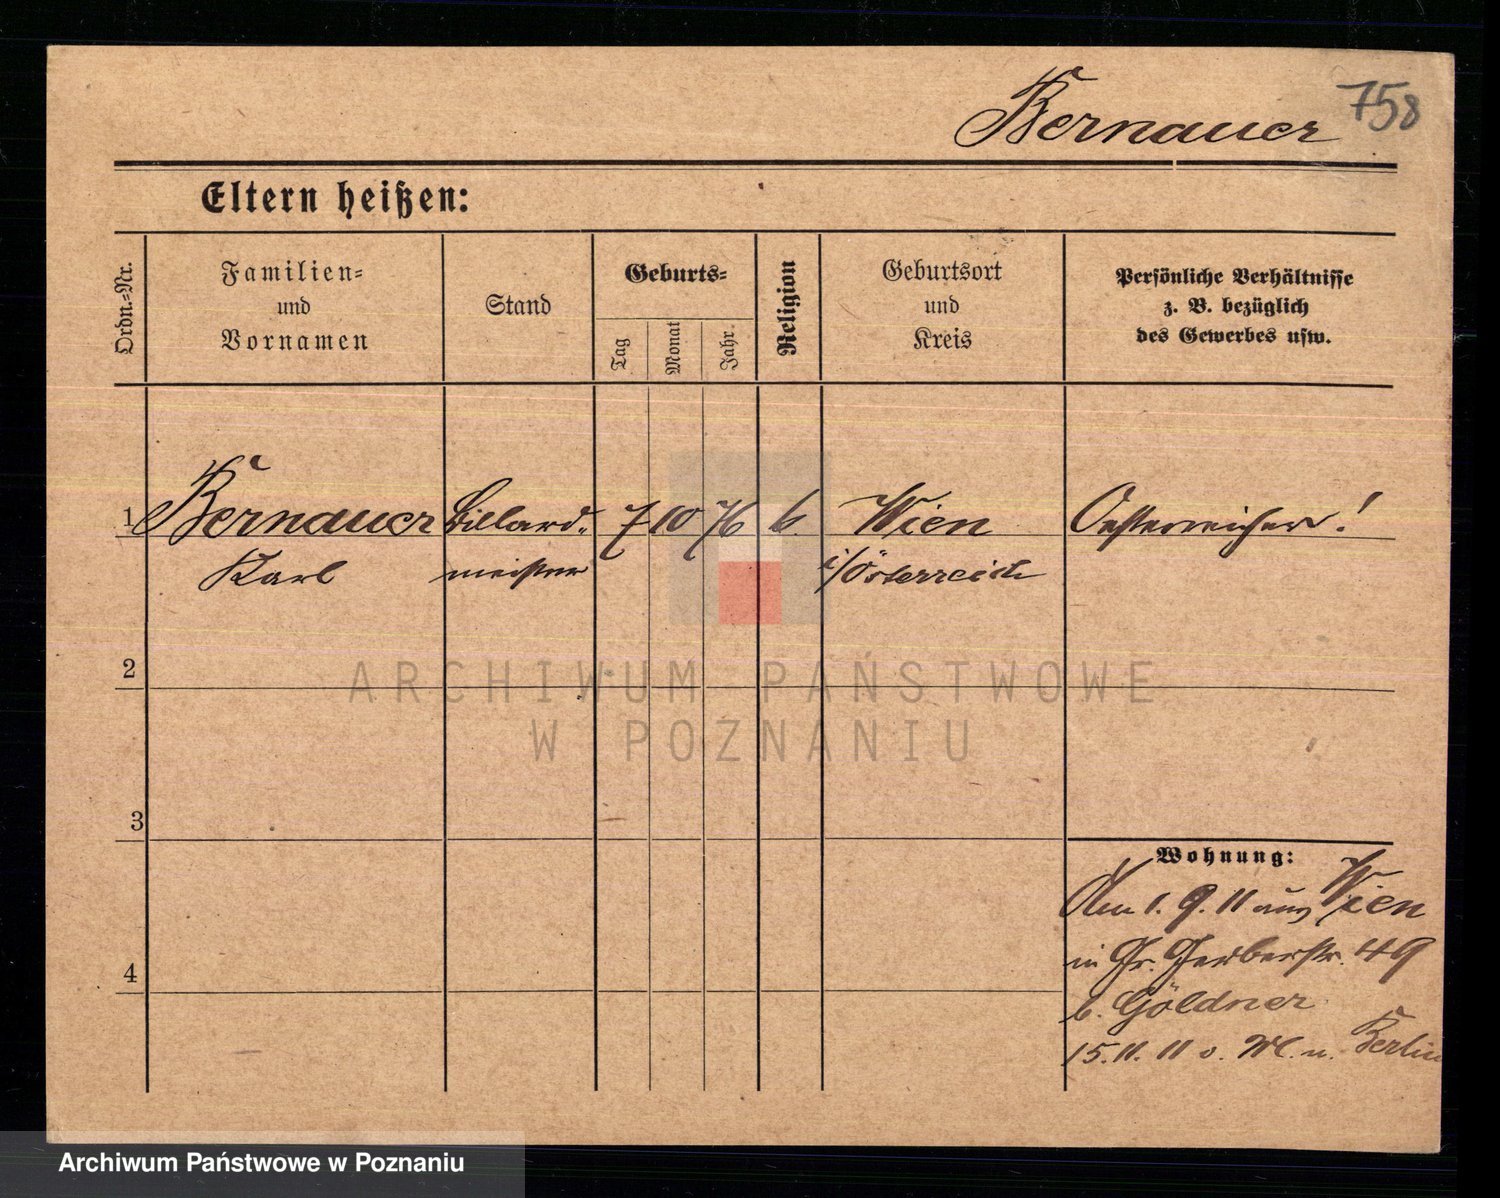 Bernauer 758
Eltern heißen:
Ordn.-Nr.
Familien-
und
Vornamen
Stand
Geburts-
Tag
Monat
Jahr.
Religion
Geburtsort
und
Kreis
Persönliche Verhältnisse
z. B. bezüglich
des Gewerbes usw.
1 Bernauer Billard- 7 10 76 k. Wien Oesterreicher!
Karl meister i/Österreich
2
3
4
Wohnung:
Am 1. 9. 11 aus Wien
in Gr. Gerberstr. 49
b. Göldner
15. 11. 11 o. W. n. Berlin
ARCHIWUM PAŃSTWOWE
W POZNANIU
Archiwum Państwowe w Poznaniu